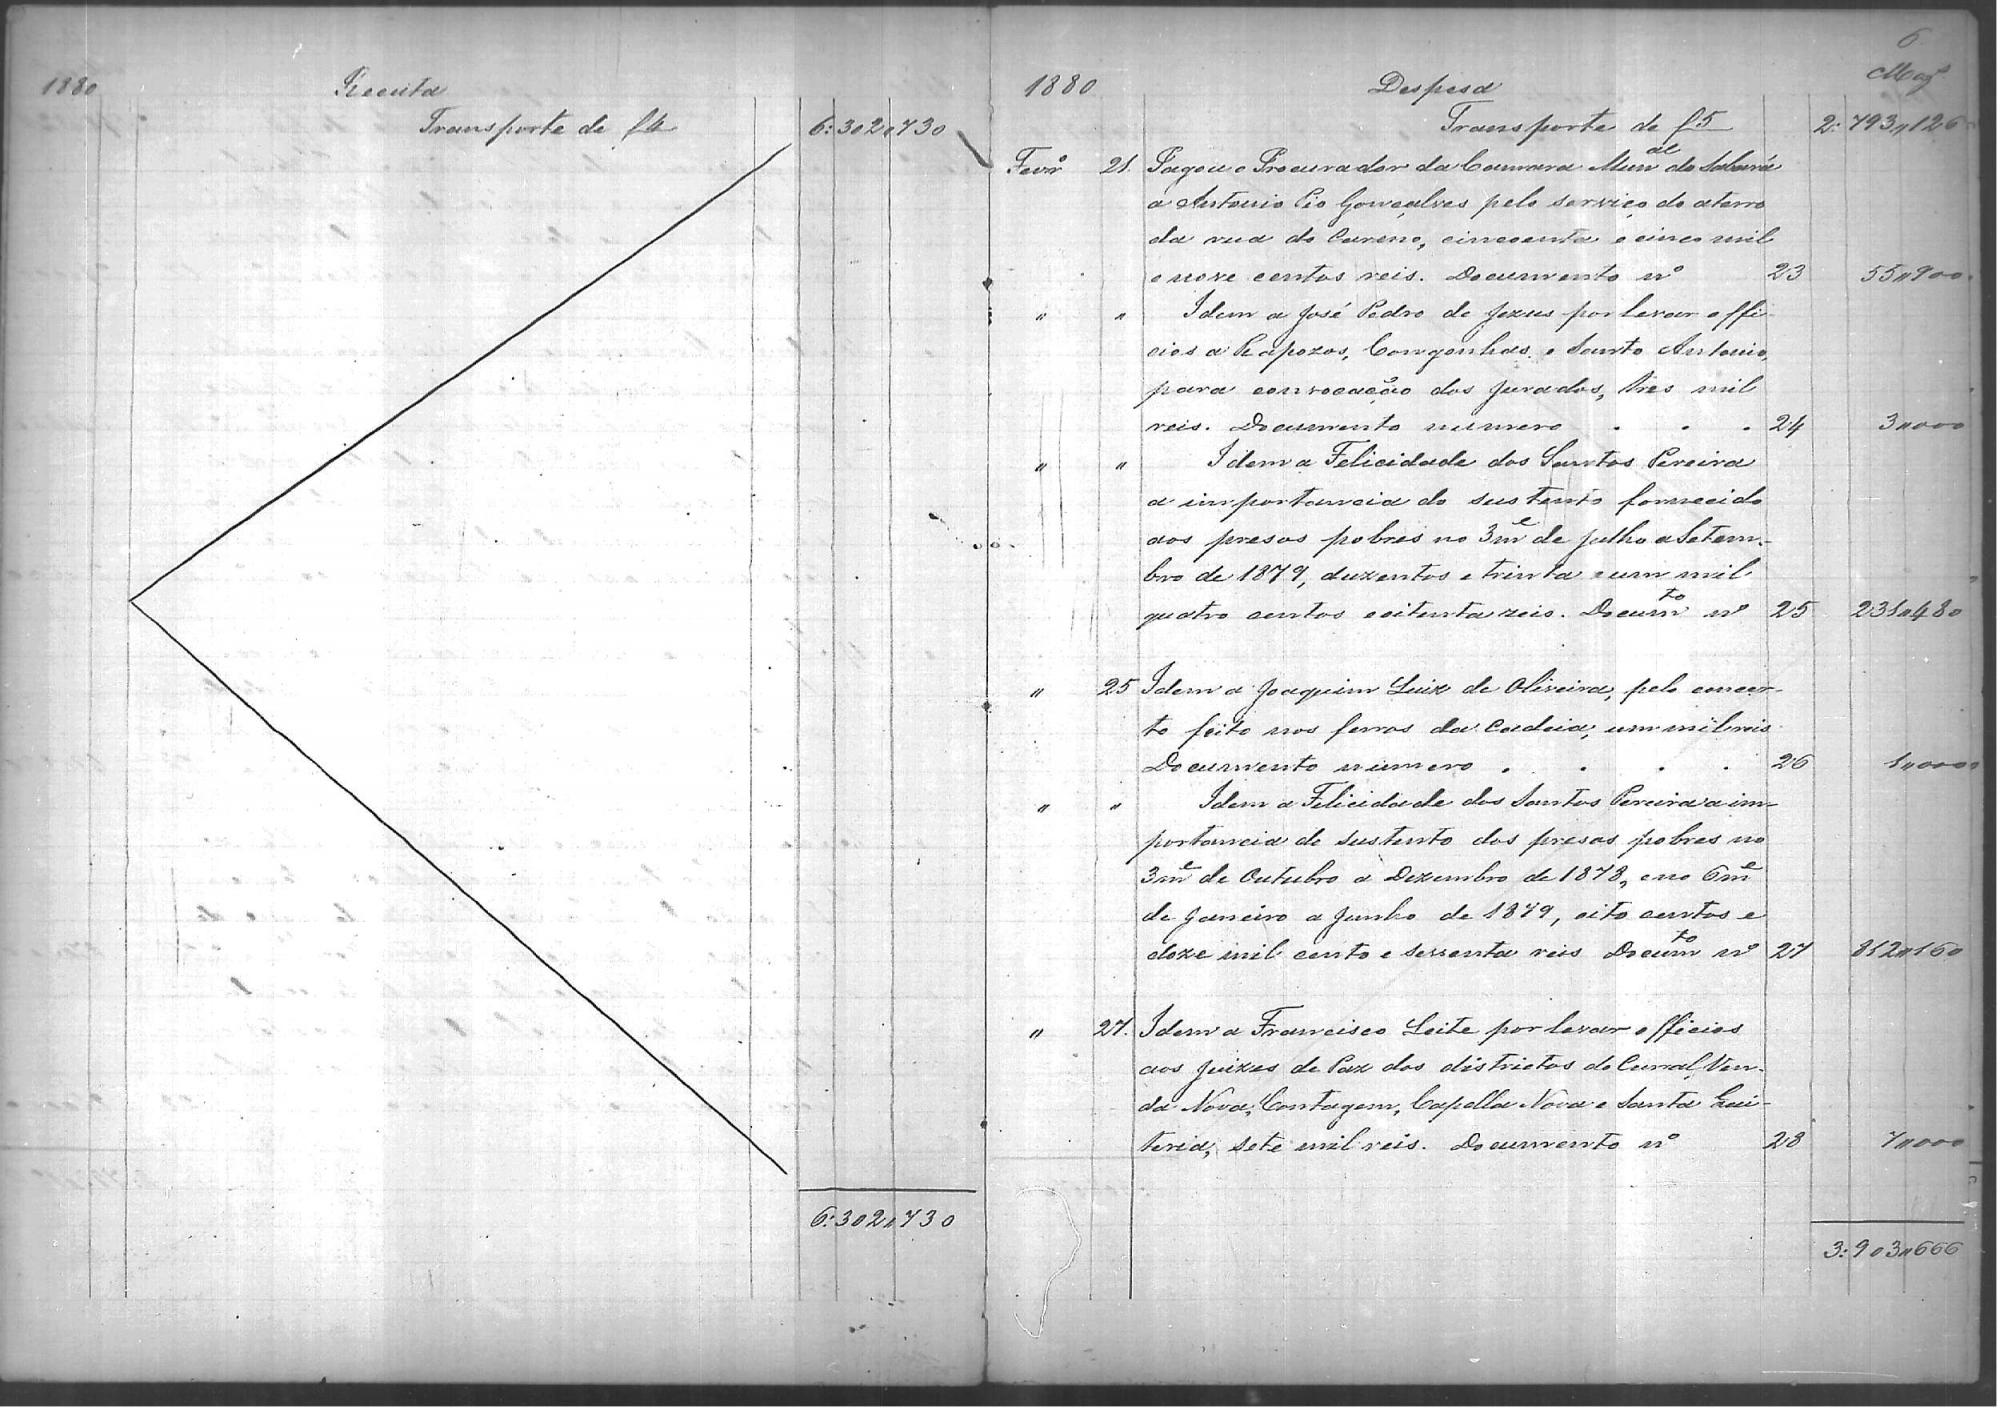 1880 Receita
Transporte de f 4 6:302,,730
6:302,,730
6
1880 Despesa
Transporte de f 5 2:793,,126
Fevrº 21. Pagou o Procurador da Camara Munal de Sabará
a Antonio Pio Gonçalves pelo serviço do aterro
da rua do Carmo, cincoenta e cinco mil
e nove centos reis. Documento nº 23 55,,900
" " Idem a José Pedro de Jezus por levar offi-
cios a Rapozos, Congonhas e Santo Antonio,
para convocação dos jurados, tres mil
reis. Documento numero . . . 24 3,,000
" " Idem a Felicidade dos Santos Pereira
a importancia do sustento fornecido
aos presos pobres no 3me de Julho a Setem-
bro de 1879, duzentos e trinta e um mil
quatro centos e oitenta reis. Documto nº 25 231,,480
" 25 Idem a Joaquim Luiz de Oliveira, pelo concer-
to feito nos ferros da Cadeia, um mil reis
Documento numero . . . . 26 1,,000
" " Idem a Felicidade dos Santos Pereira a im-
portancia de sustento dos presos pobres no
3me de Outubro a Dezembro de 1878, e no 6me
de Janeiro a Junho de 1879, oito centos e
doze mil cento e sessenta reis Documto nº 27 812,,160
" 27. Idem a Francisco Leite por levar officios
aos Juizes de Paz dos districtos do Curral, Ven-
da Nova, Contagem, Capella Nova e Santa Qui-
teria, sete mil reis. Documento nº 28 7,,000
3:903,,666